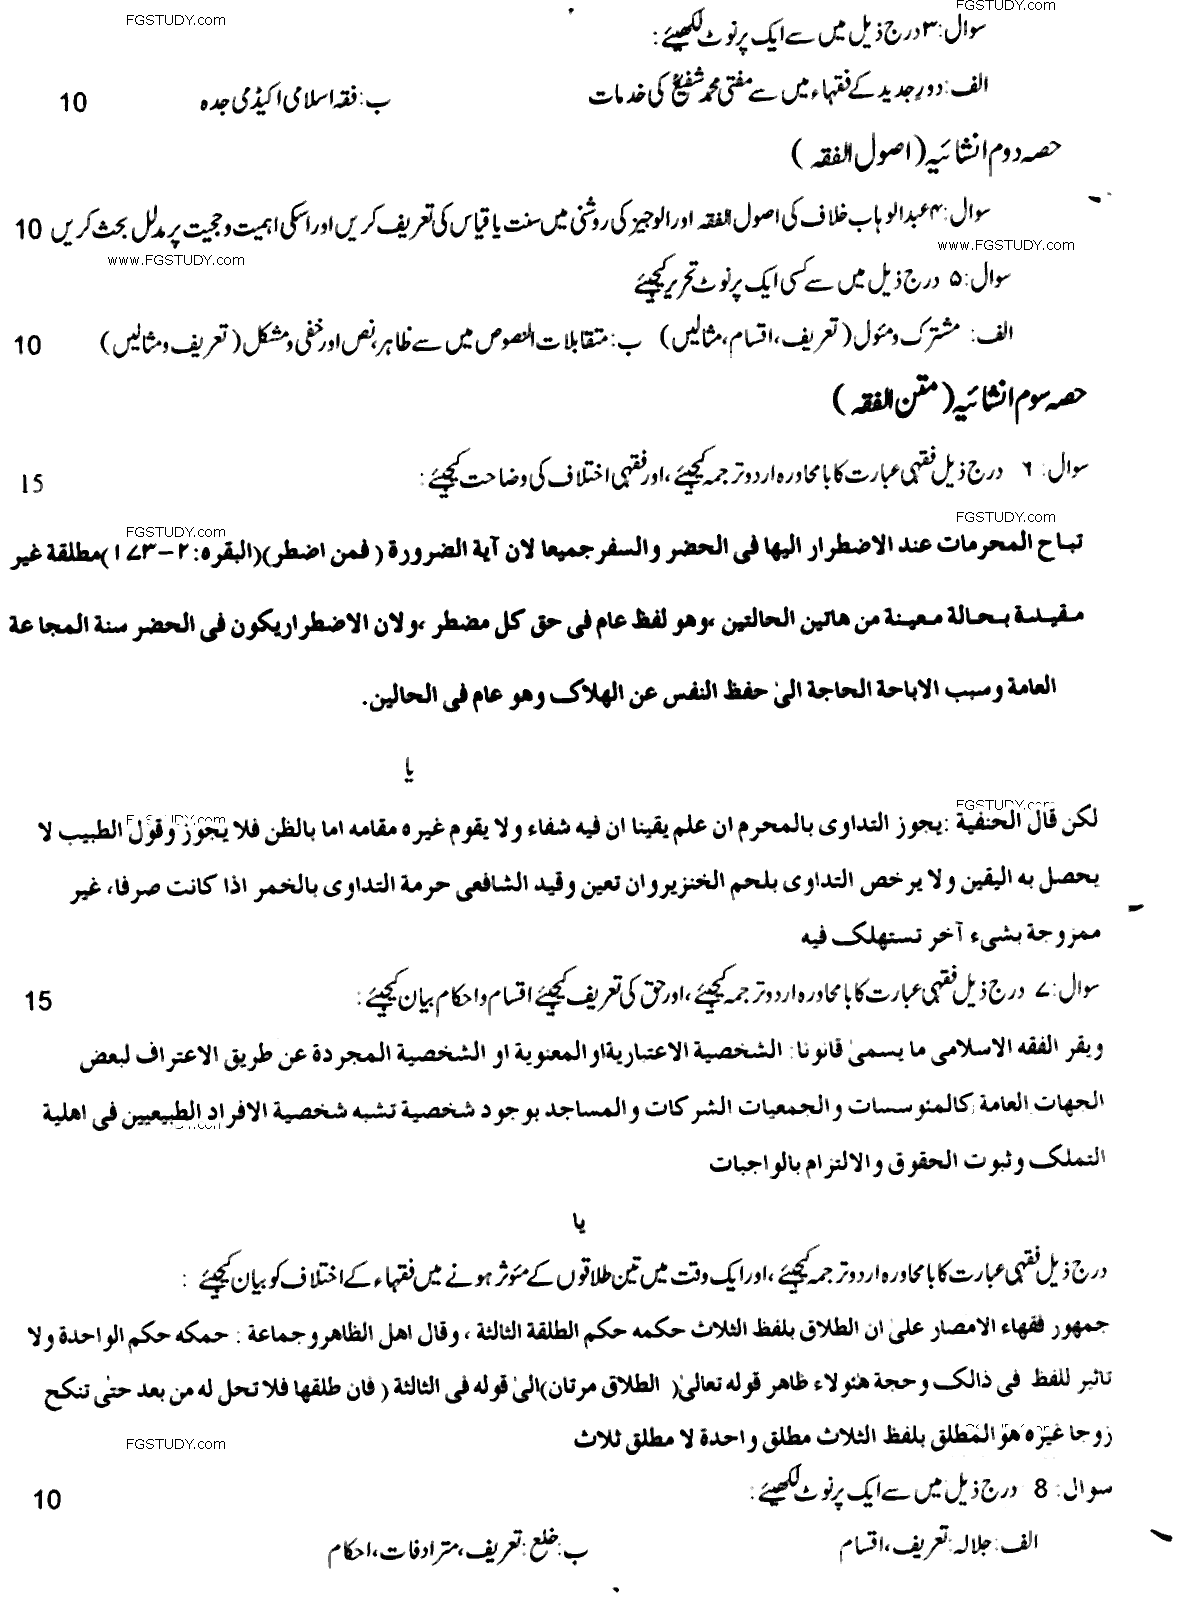 FGSTUDY.com
FGSTUDY.com
سوال:۳درج ذیل میں سے ایک پر نوٹ لکھیئے:
الف: دورِجدید کے فقہاء میں سے مفتی محمد شفیعؒ کی خدمات ب: فقہ اسلامی اکیڈمی جدہ 10
حصہ دوم انشائیہ (اصول الفقہ)
سوال:۴عبدالوہاب خلاف کی اصول الفقہ اور الوجیز کی روشنی میں سنت یا قیاس کی تعریف کریں اور اسکی اہمیت و حجیت پر مدلل بحث کریں 10
www.FGSTUDY.com
www.FGSTUDY.com
سوال: ۵ درج ذیل میں سے کسی ایک پر نوٹ تحریر کیجیئے
الف: مشترک و مئول (تعریف، اقسام، مثالیں) ب: متقابلات النصوص میں سے ظاہر، نص اور خفی و مشکل (تعریف و مثالیں) 10
حصہ سوم انشائیہ (متن الفقہ)
سوال: ۶ درج ذیل فقہی عبارت کا بامحاورہ اردو ترجمہ کیجیئے، اور فقہی اختلاف کی وضاحت کیجیئے: 15
FGSTUDY.com
FGSTUDY.com
تباح المحرمات عند الاضطرار الیها فی الحضر والسفر جمیعا لان آیة الضرورة (فمن اضطر)(البقره: ۲-۱۷۳) مطلقة غیر
مقیدة بحالة معینة من هاتین الحالتین ،وهو لفظ عام فی حق کل مضطر ،ولان الاضطرار یکون فی الحضر سنة المجاعة
العامة وسبب الاباحة الحاجة الیٰ حفظ النفس عن الهلاک وهو عام فی الحالین.
یا
FGSTUDY.com
FGSTUDY.com
لکن قال الحنفیة :یجوز التداوی بالمحرم ان علم یقینا ان فیه شفاء ولا یقوم غیره مقامه اما بالظن فلا یجوز وقول الطبیب لا
یحصل به الیقین ولا یرخص التداوی بلحم الخنزیر وان تعین وقید الشافعی حرمة التداوی بالخمر اذا کانت صرفا، غیر
ممزوجة بشیء آخر تستهلک فیه
سوال: ۷ درج ذیل فقہی عبارت کا بامحاورہ اردو ترجمہ کیجیئے، اور حق کی تعریف کیجیئے اقسام و احکام بیان کیجیئے: 15
ویقر الفقه الاسلامی ما یسمیٰ قانونا: الشخصیة الاعتباریة او المعنویة او الشخصیة المجردة عن طریق الاعتراف لبعض
الجهات العامة کالمئوسسات والجمعیات الشرکات والمساجد بوجود شخصیة تشبه شخصیة الافراد الطبیعیین فی اهلیة
التملک وثبوت الحقوق والالتزام بالواجبات
یا
درج ذیل فقہی عبارت کا بامحاورہ اردو ترجمہ کیجیئے، اور ایک وقت میں تین طلاقوں کے مئوثر ہونے میں فقہاء کے اختلاف کو بیان کیجیئے:
جمهور فقهاء الامصار علیٰ ان الطلاق بلفظ الثلاث حکمه حکم الطلقة الثالثة ، وقال اهل الظاهر وجماعة : حمکه حکم الواحدة ولا
تاثیر للفظ فی ذالک وحجة هٰئولاء ظاهر قوله تعالیٰ( الطلاق مرتان)الیٰ قوله فی الثالثة ( فان طلقها فلا تحل له من بعد حتیٰ تنکح
زوجا غیره هو المطلق بلفظ الثلاث مطلق واحدة لا مطلق ثلاث
FGSTUDY.com
سوال: 8 درج ذیل میں سے ایک پر نوٹ لکھیئے: 10
الف: جلالہ: تعریف، اقسام ب: خلع: تعریف، مترادفات، احکام